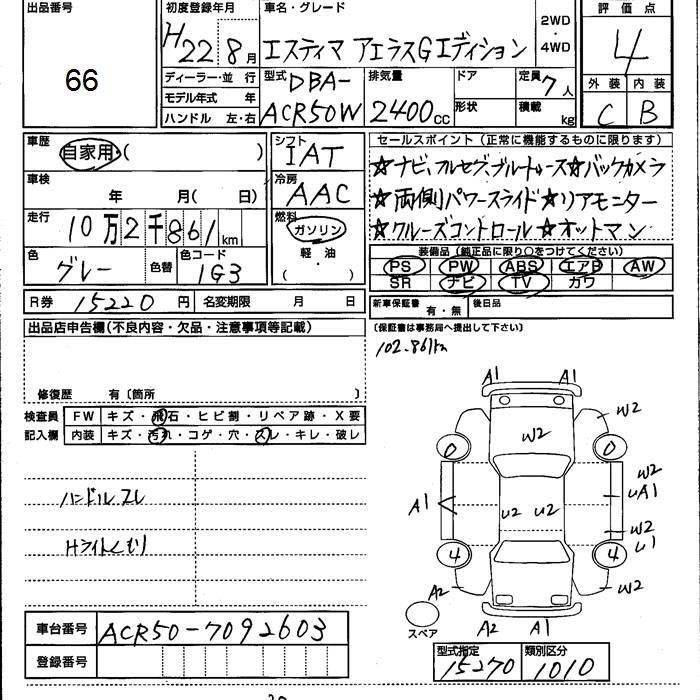 出品番号
66
初度登録年月
H22 8月
車名・グレード
エスティマ アエラスGエディション
2WD
・
4WD
評価点
4
外装 内装
C B
ディーラー・並行
モデル年式 年
ハンドル 左・右
型式
DBA-
ACR50W
排気量
2400cc
ドア
形状
定員 7人
積載 kg
車歴
自家用・( )
車検
年 月( 日)
走行
10万2千861km
色
グレー
色替
色コード
1G3
シフト
IAT
冷房
AAC
燃料
ガソリン
(軽・油)
セールスポイント(正常に機能するものに限ります)
☆ナビ,フルセグ,ブルートゥース☆バックカメラ
☆両側パワースライド☆リアモニター
☆クルーズコントロール☆オットマン
装備品(純正品に限り○をつけてください)
PS PW ABS エアB AW
SR ナビ TV カワ
R券 15220円
名変期限 月 日
新車保証書 有・無
後日品
(保証書は事務局へ提出して下さい)
出品店申告欄(不良内容・欠品・注意事項等記載)
修復歴 有〔箇所 〕
102.861km
検査員
記入欄
FW キズ・飛石・ヒビ割・リペア跡・X要
内装 キズ・汚れ・コゲ・穴・スレ・キレ・破レ
ハンドルスレ
Hライトくもり
A1 A1
W2
W2
0 0
W2
A1
UA1
U2 U2
W2
U1
4 4
A2
W2
A2 A1
スペア
車台番号 ACR50-7092603
登録番号
型式指定
15270
類別区分
1010